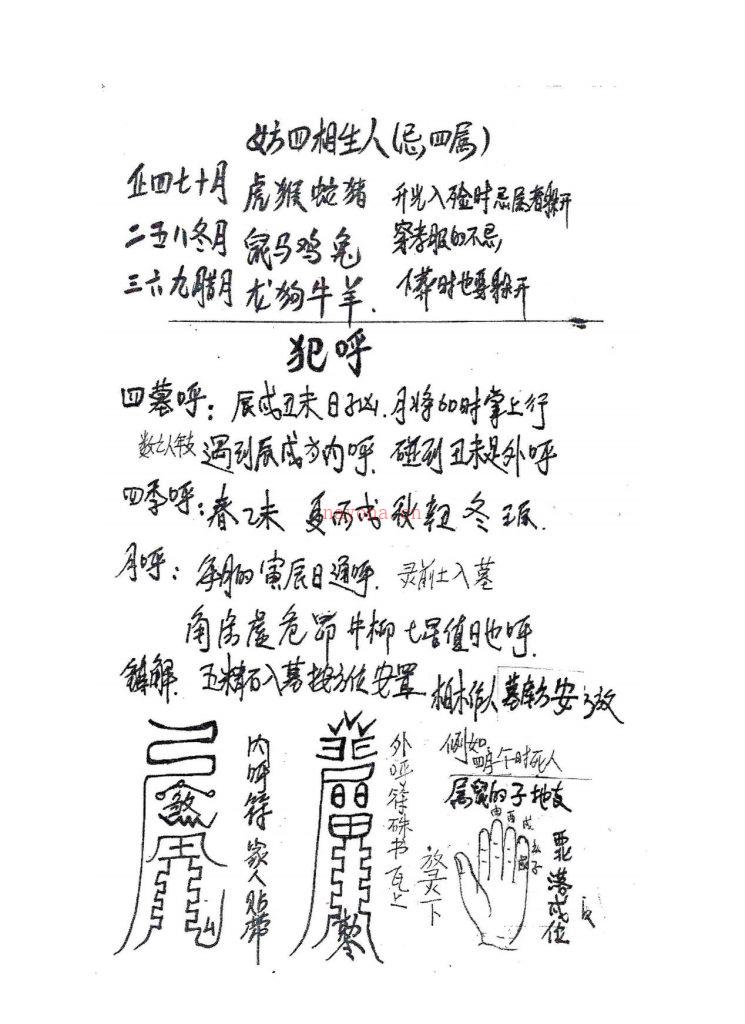 妨四相生人(忌四属)
正四七十月 虎猴蛇猪 开光入殓时忌属者躲开
二五八冬月 鼠马鸡兔 穿孝服的不忌,
三六九腊月 龙狗牛羊. 下葬时也要躲开
犯呼
四墓呼: 辰戌丑未日子凶. 月将加时掌上行
数亡人年支 遇到辰戌为内呼. 碰到丑未是外呼
四季呼: 春乙未 夏丙戌 秋辛丑 冬壬辰.
月呼: 每月的寅辰日通呼. 灵前土入墓
角房虚危昴牛柳七星值日也呼.
镇解. 五精石入墓按方位安置 柏木作人墓库方安
内呼符 家人贴带
外呼符 硃书瓦上
放灵下
例如
属鼠的子地支
申 酉 戌
亥
子
落戌位
煞